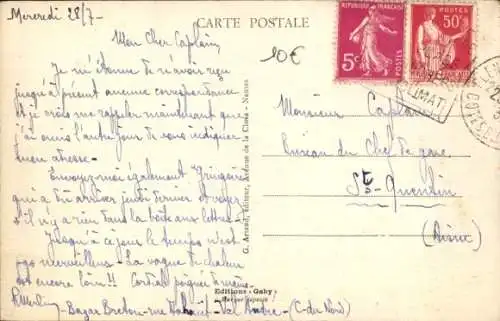 Mercredi 28/7-
CARTE POSTALE
10€
REPUBLIQUE FRANÇAISE
5c
50c
Mon Cher Caplain
Je m'étonne de n'avoir reçu
jusqu'à présent aucune correspondance
et je crois me rappeler maintenant que
j'ai omis l'autre jour de vous indiquer
mon adresse-
Envoyez-moi également "Gringoire"
qui a dû arriver jeudi dernier et voyez
s'il n'y a rien dans la boîte aux lettres-
Jusqu'à ce jour le temps n'est
pas merveilleux- La vague de chaleur
est encore loin!! Cordiale poignée de main-
Bazar Breton- rue - Val André- (C-du Nord)
G. Artaud, Editeur, Avenue de la Close - Nantes
Editions "Gaby"
Monsieur Caplain
Bureau du Chef de gare
St-Quentin
(Aisne)
CLIMAT